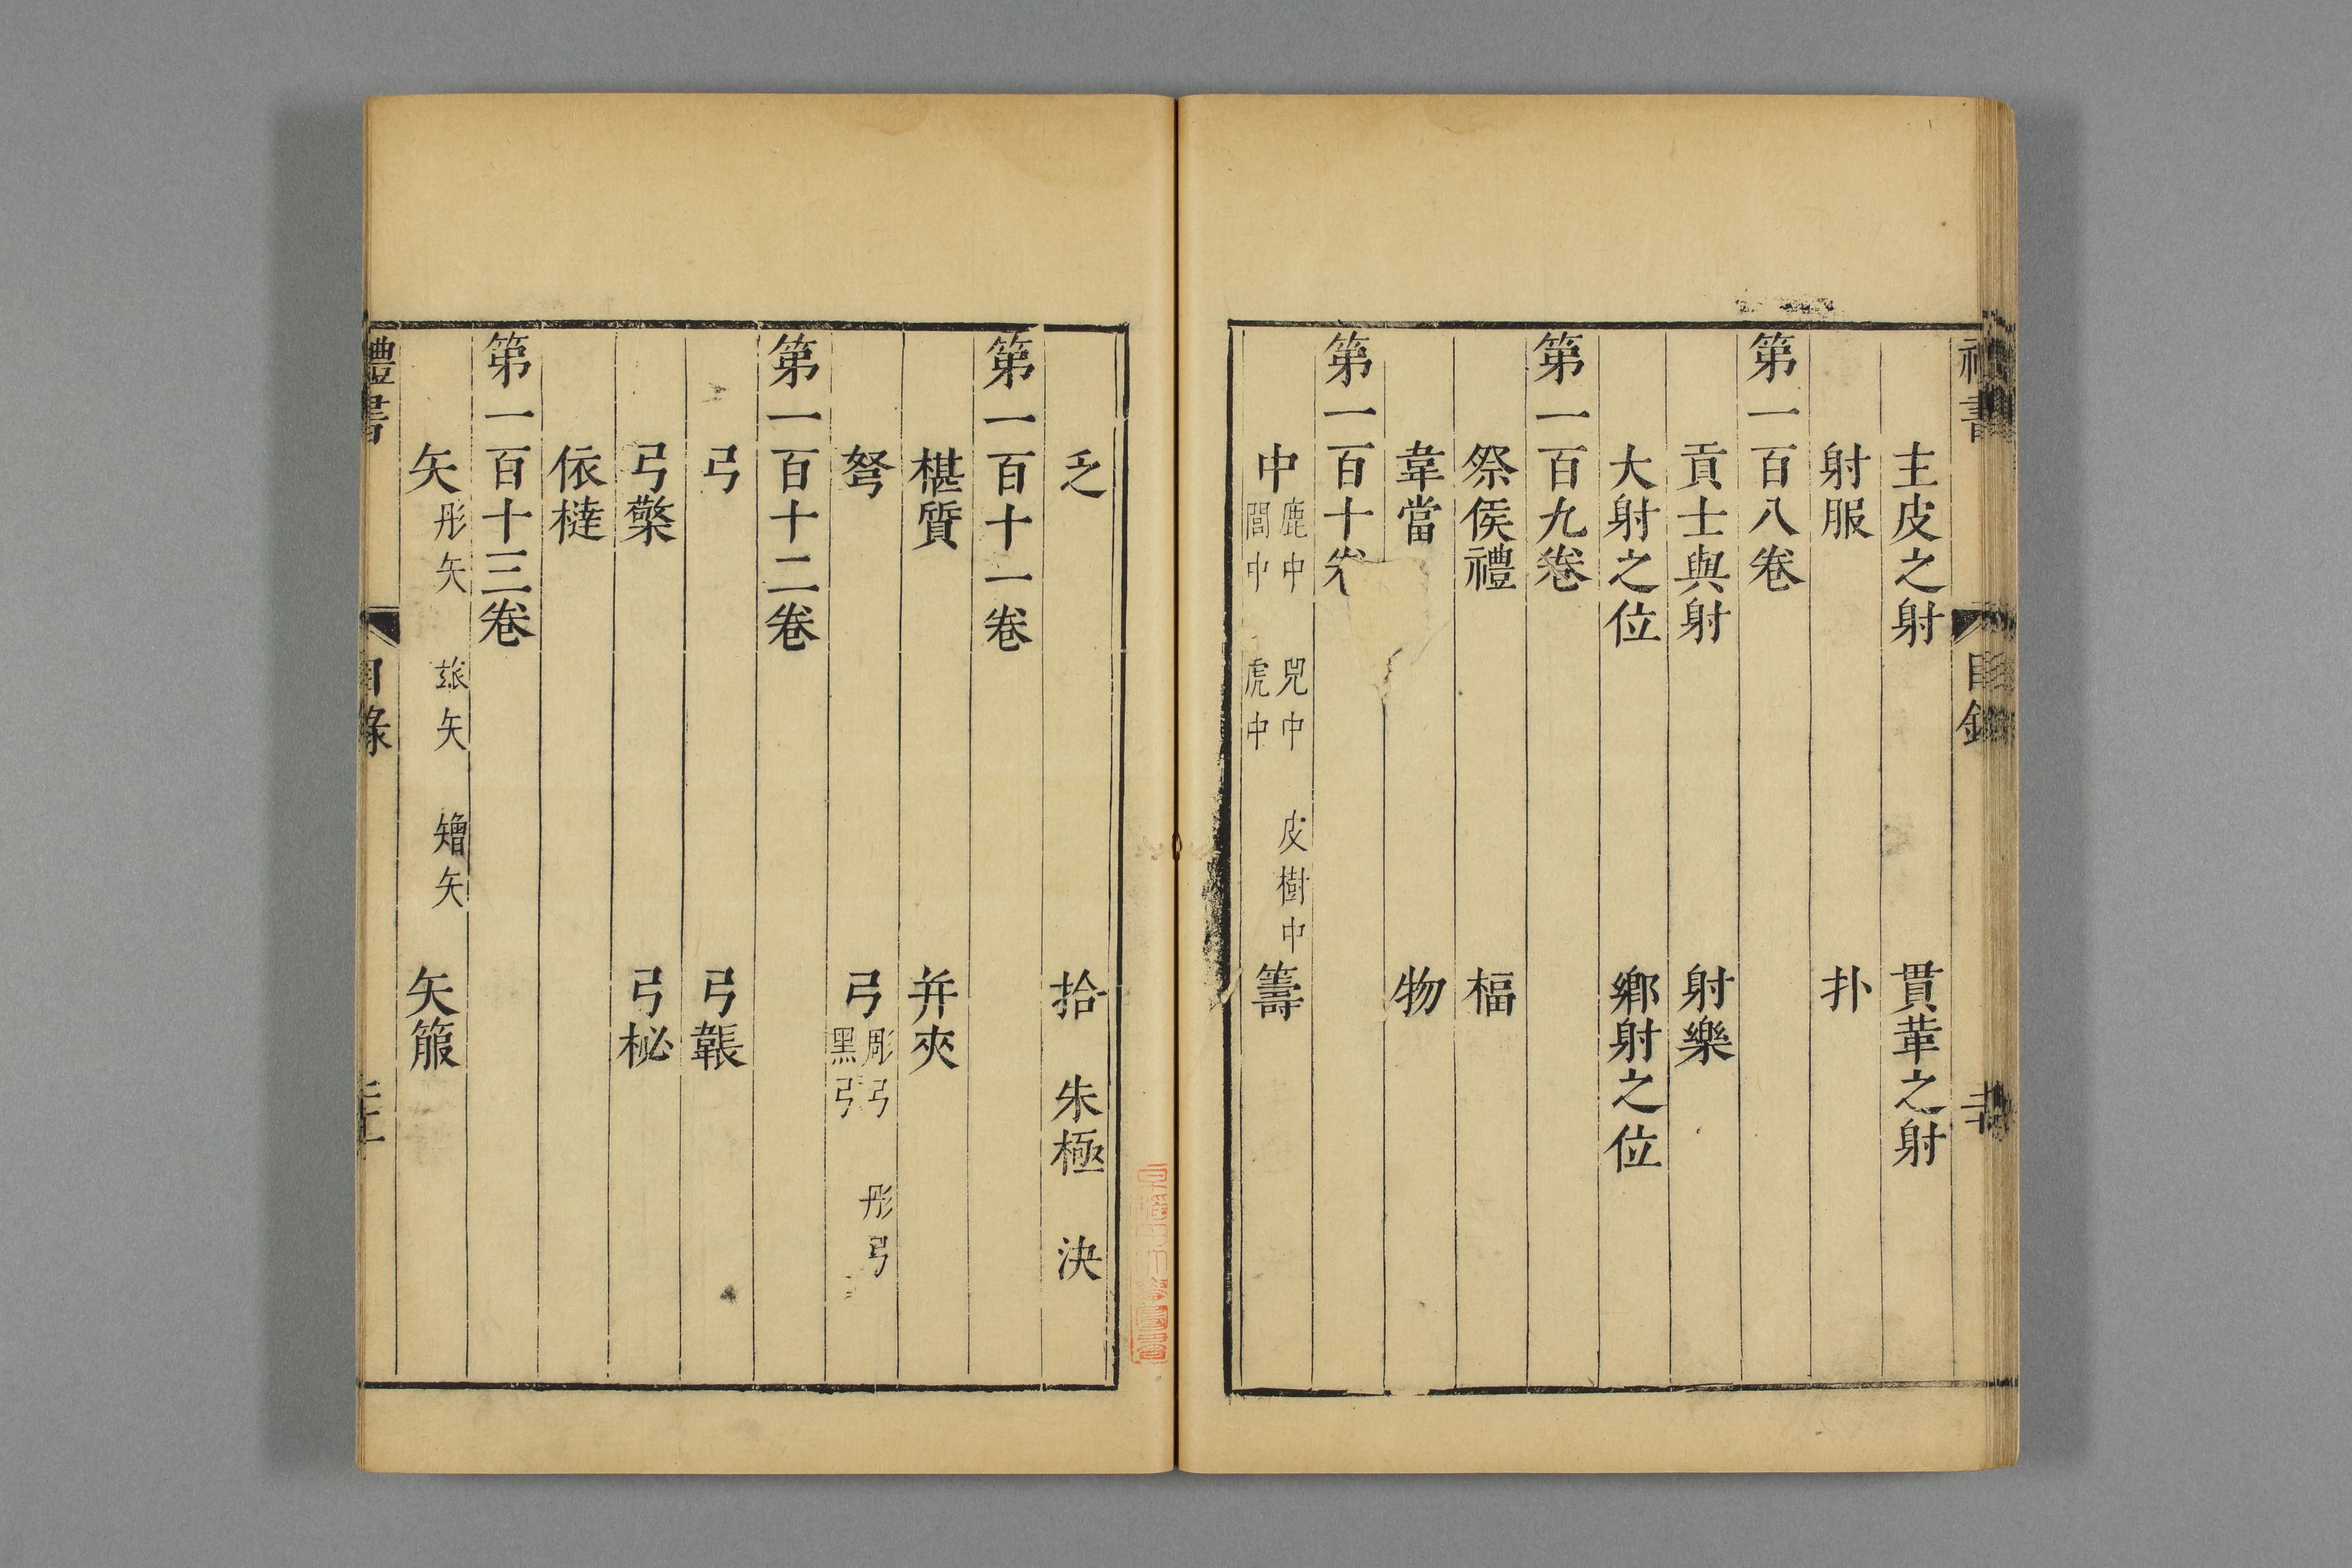 主皮之射 貫革之射
射服 扑
第一百八卷
貢士與射 射樂
大射之位 鄉射之位
第一百九卷
祭侯禮 楅
韋當 物
第一百十卷
中 鹿中 兕中 皮樹中
閭中 虎中
籌
乏 拾 朱極 決
第一百十一卷
椹質 并夾
弩 弓 彫弓 彤弓
黑弓
第一百十二卷
弓 弓韔
弓檠 弓柲
依𣝓
第一百十三卷
矢 彤矢 玈矢 矰矢 矢箙
禮書 目錄